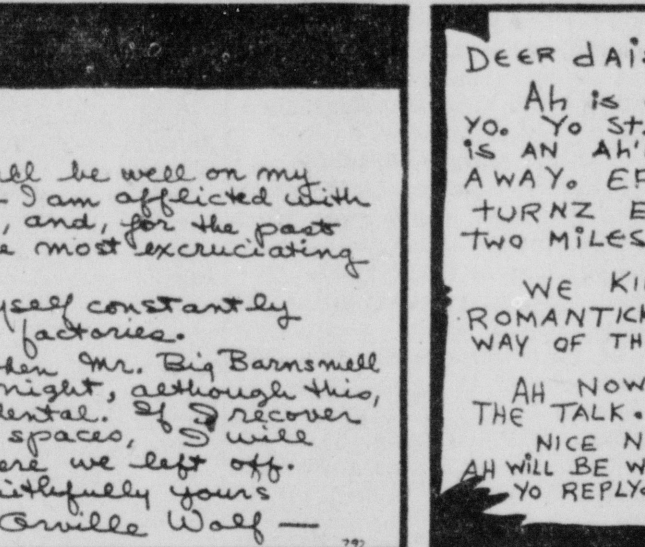 be well on my
I am afflicted with
, and, for the past
most excruciating
constantly
factories.
Mr. Big Barnsmell
night, although this,
If I recover
spaces, I will
we left off.
yours
Orville Wolf —
792
DEER
Ah is
YO. YO St.
is AN Ah'
AWAY. EF
tURNZ E
TWO MiLES
WE
ROMANTICK
WAY OF TH
AH NOW
THE TALK.
NICE N
AH WiLL BE W
YO REPLY